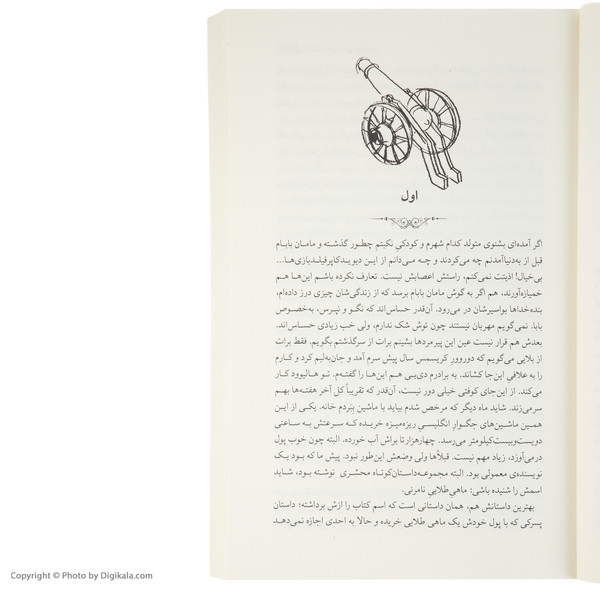 اول
اگر آمده‌ای بشنوی متولد کدام شهرم و کودکیِ نکبتم چطور گذشته و مامان بابام
قبل از به‌دنیاآمدنم چه می‌کردند و چه می‌دانم از این دیویدکاپرفیلدبازی‌ها...
بی‌خیال! اذیتت نمی‌کنم، راستش اعصابش نیست. تعارف نکرده باشم این‌ها هم
خمیازه‌آورند، هم اگر به گوش مامان بابام برسد که از زندگی‌شان چیزی درز داده‌ام،
بنده‌خداها بواسیرشان در می‌رود. آن‌قدر حساس‌اند که نگو و نپرس، به‌خصوص
بابا. نمی‌گویم مهربان نیستند چون توش شک ندارم، ولی خب زیادی حساس‌اند.
بعدش هم قرار نیست عین این پیرمردها بشینم برات از سرگذشتم بگویم. فقط برات
از بلایی می‌گویم که دوروورِ کریسمس سال پیش سرم آمد و جان‌به‌لبم کرد و کارم
را به علافیِ این‌جا کشاند. به برادرم دی‌بی هم این‌ها را گفته‌م. تو هالیوود کار
می‌کند. از این‌جای کوفتی خیلی دور نیست، آن‌قدر که تقریباً کل آخر هفته‌ها بهم
سر می‌زند. شاید ماه دیگر که مرخص شدم بیاید با ماشین بَبَردم خانه. یکی از این
همین ماشین‌های جگوارِ انگلیسیِ ریزه‌میزه خریده که سرعتش به ساعتی
دویست‌وبیست‌کیلومتر می‌رسد. چهارهزارتا براش آب خورده. البته چون خوب پول
درمی‌آورَد، زیاد مهم نیست. قبلاًها ولی وضعش این‌طور نبود. پیش ما که بود یک
نویسنده‌ی معمولی بود. البته مجموعه‌داستان‌کوتاه محشری نوشته بود، شاید
اسمش را شنیده باشی: ماهیِ طلاییِ نامرئی.
بهترین داستانش هم، همان داستانی است که اسم کتاب را ازش برداشته؛ داستان
پسرکی که با پول خودش یک ماهی طلایی خریده و حالا به احدی اجازه نمی‌دهد
Copyright © Photo by Digikala.com